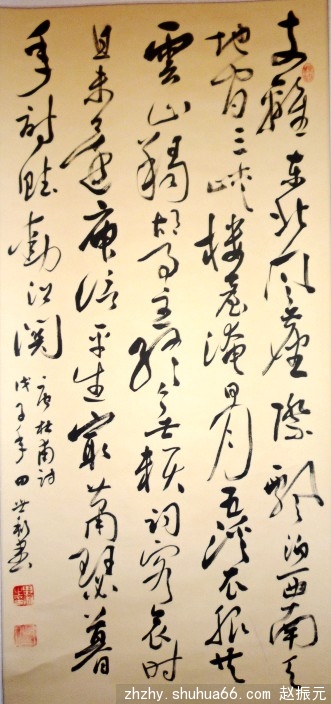 支離東北風塵際飄泊西南天
地間三峽樓臺淹日月五溪衣服共
雲山羯胡事主終無賴詞客哀時
且未還庾信平生最蕭瑟暮
年詩賦動江關
唐杜甫詩
戊子年田書
zhzhy.shuhua66.com 赵振元